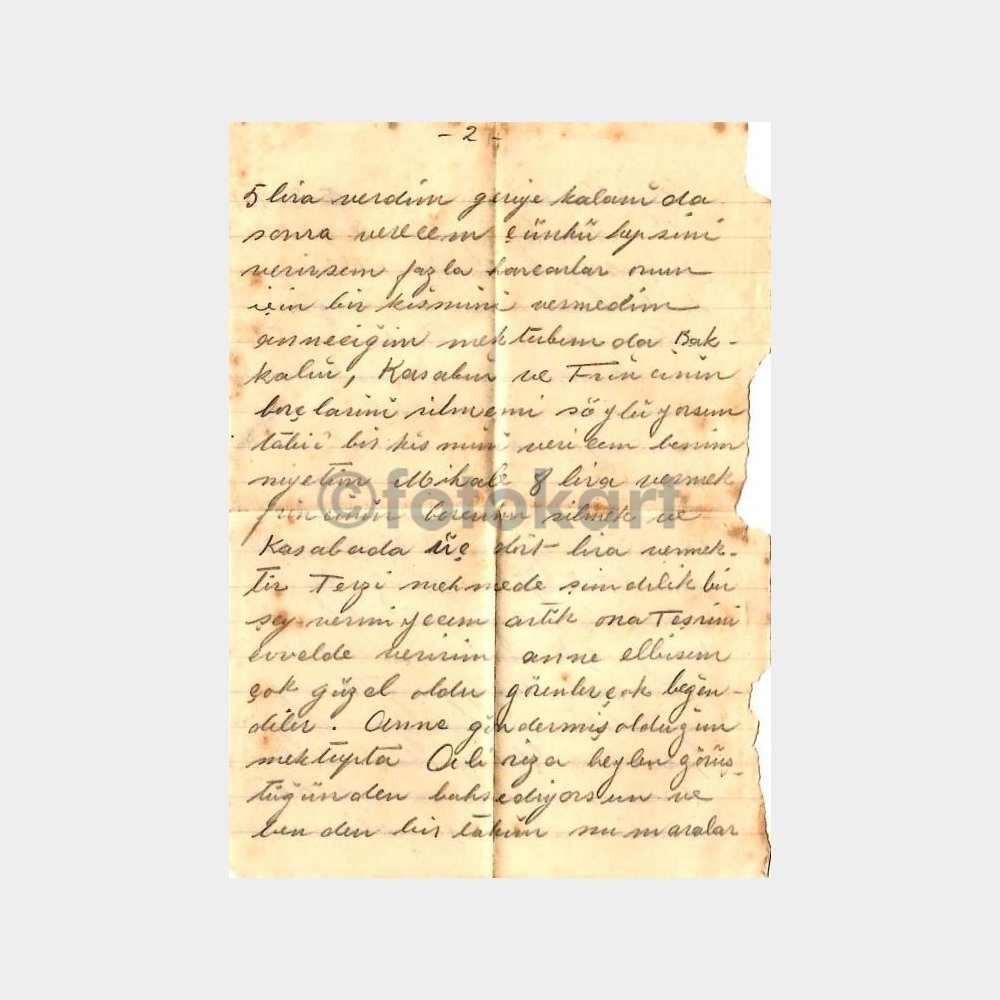 - 2 -
5 lira verdim geriye kalanı da
sonra verecem çünkü hepsini
verirsem fazla harcarlar onun
için bir kısmını vermedim
anneciğim mektubumda Bak-
kalın, Kasabın ve Fırıncının
borçlarını silmemi söylüyorsun
tabii bir kısmını vericem benim
niyetim Mihale 8 lira vermek
fırıncının borcunu silmek ve
Kasabada üç dört lira vermek-
tir Terzi mehmede şimdilik bir
şey vermiyecem artık ona Teşrini
evvelde veririm anne elbisem
çok güzel oldu görenler çok beğen-
diler. Anne göndermiş olduğun
mektupta Ali rıza beylen görüş-
tüğünden bahsediyorsun ve
benden bir takım numaralar
©fotokart